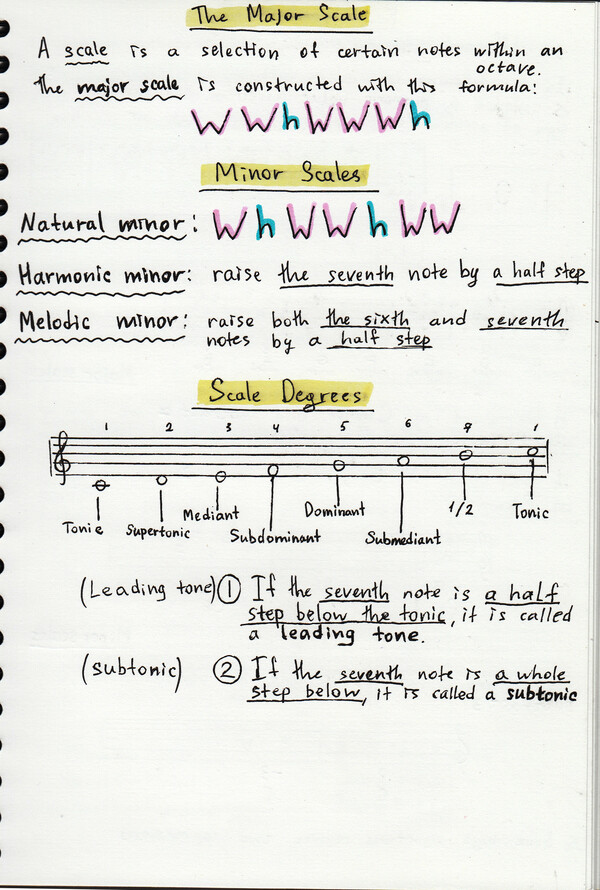 The Major Scale
A scale is a selection of certain notes within an
octave.
The major scale is constructed with this formula:
W W h W W W h
Minor Scales
Natural minor: W h W W h W W
Harmonic minor: raise the seventh note by a half step
Melodic minor: raise both the sixth and seventh
notes by a half step
Scale Degrees
1 2 3 4 5 6 7 1
Tonic Supertonic Mediant Subdominant Dominant Submediant 1/2 Tonic
(Leading tone) 1 If the seventh note is a half
step below the tonic, it is called
a leading tone.
(subtonic) 2 If the seventh note is a whole
step below, it is called a subtonic